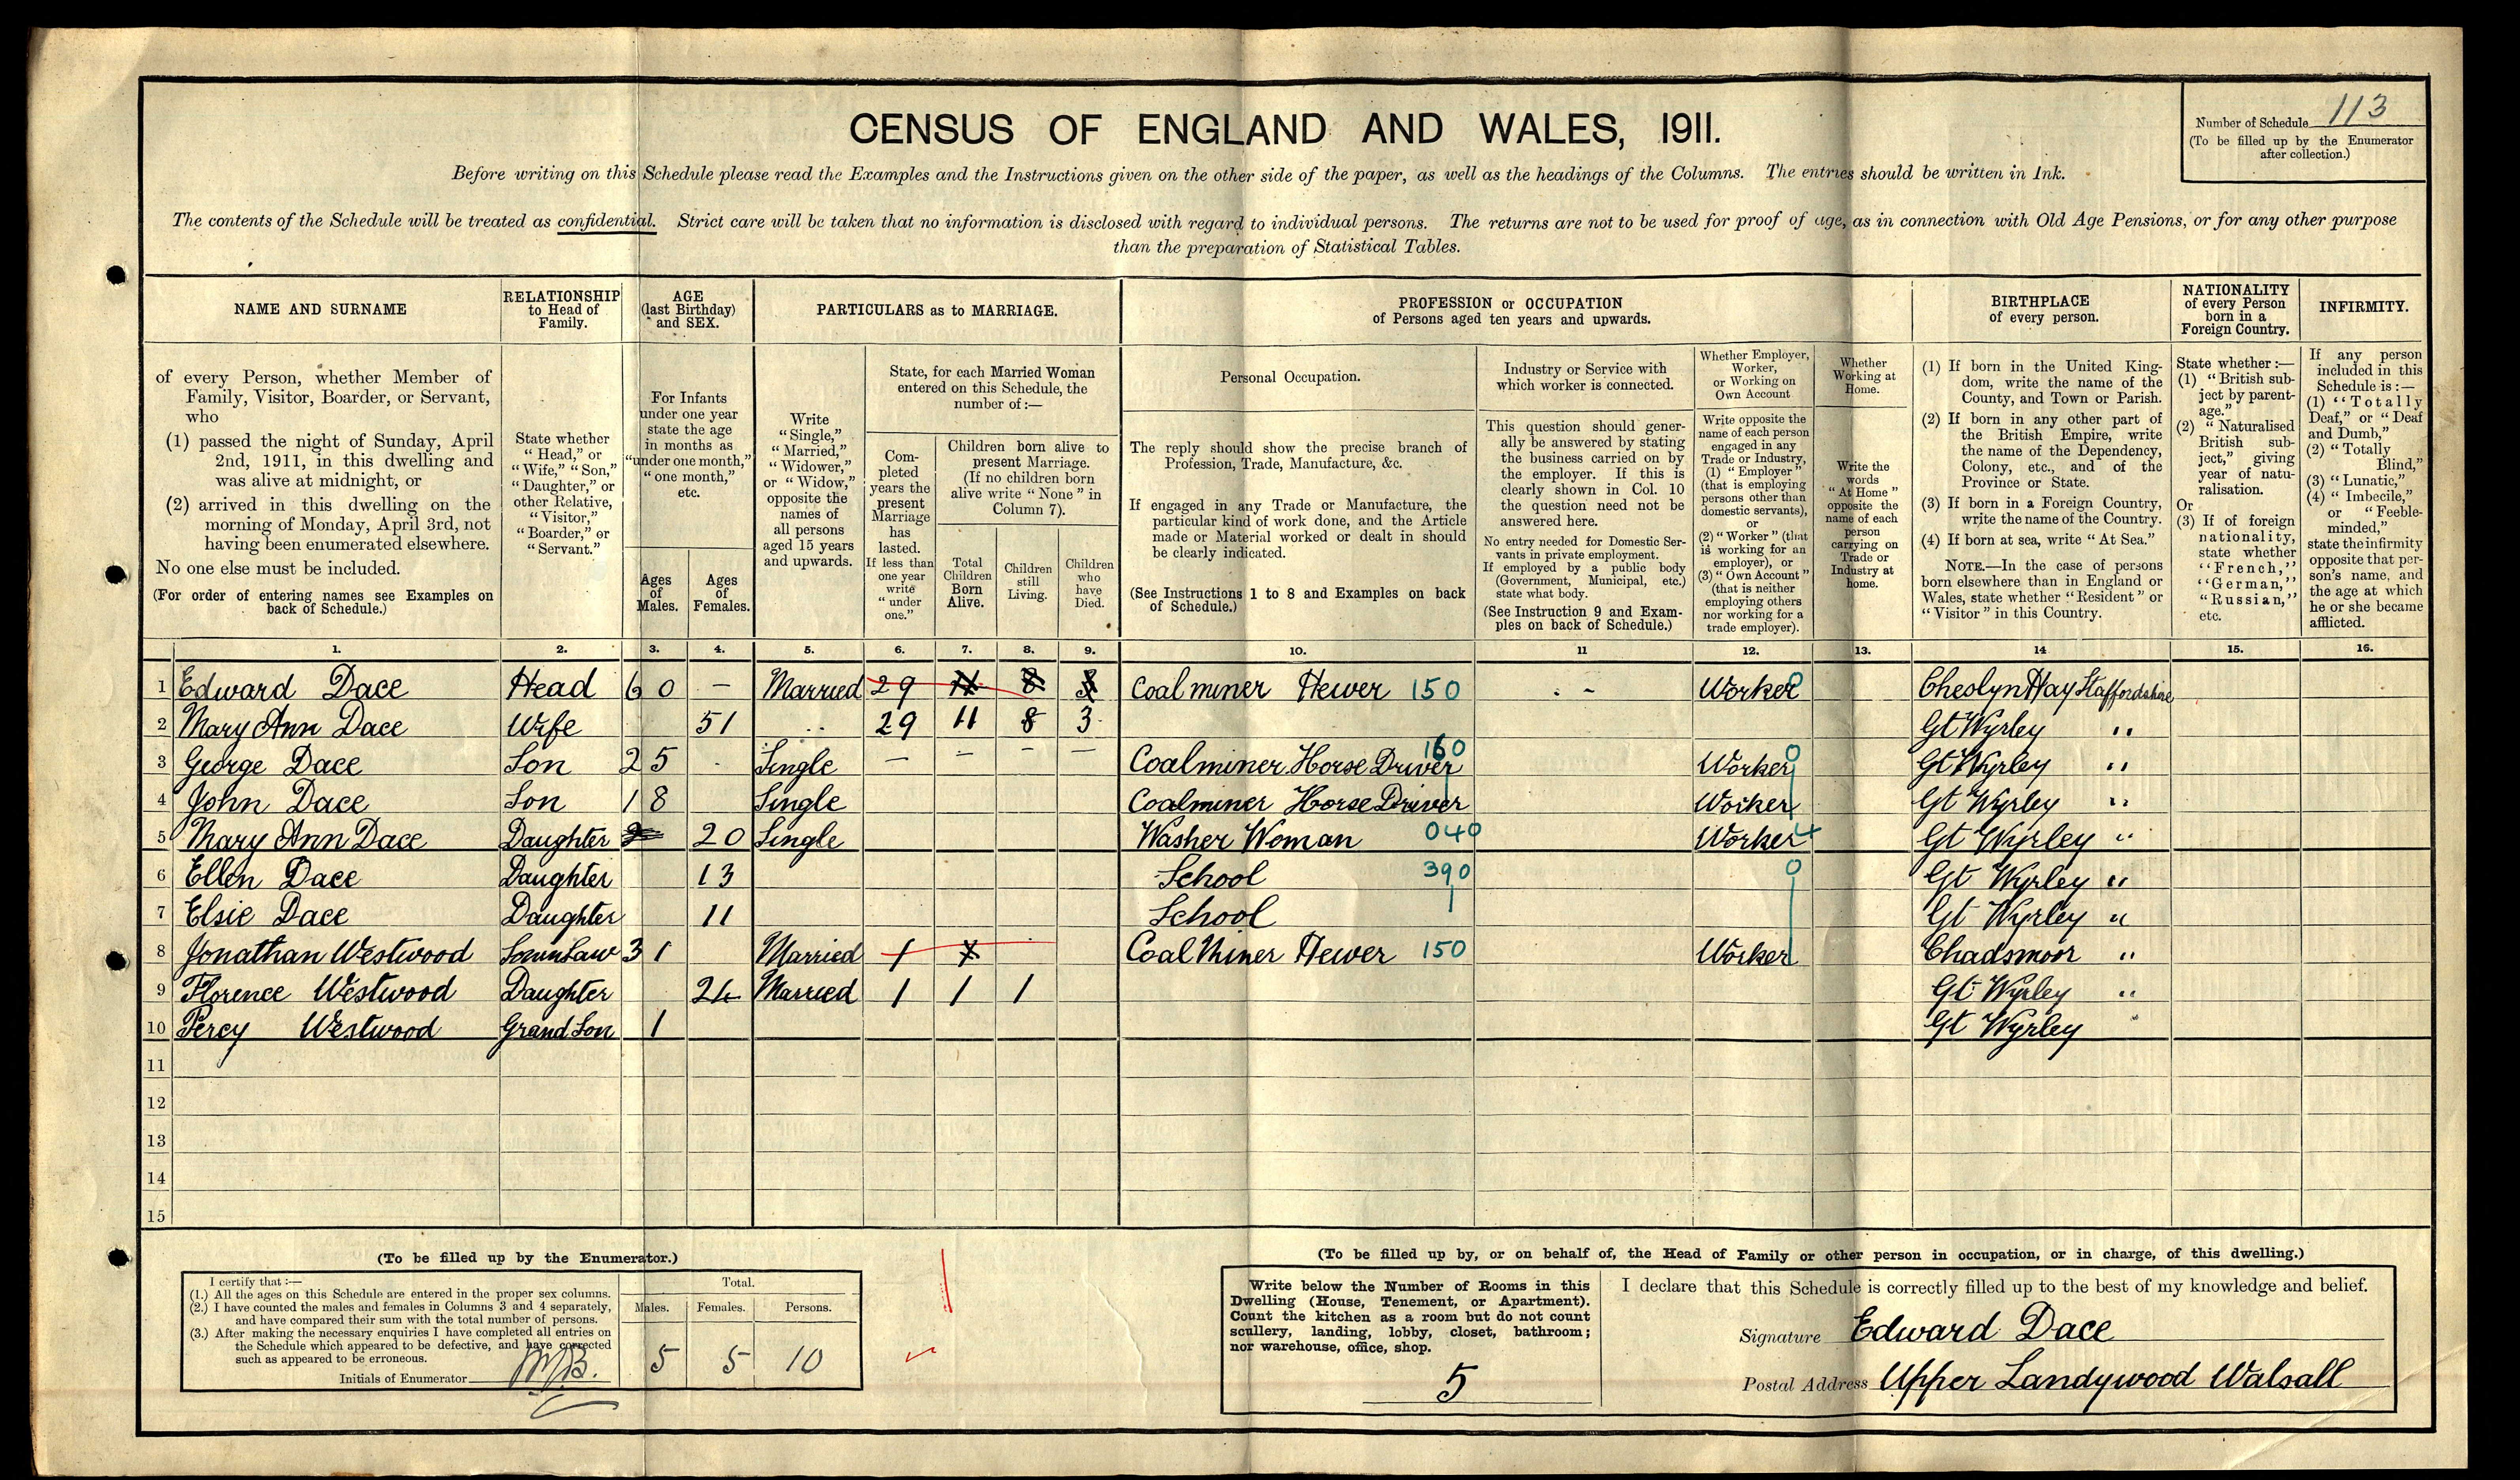 CENSUS OF ENGLAND AND WALES, 1911.
Number of Schedule 113
(To be filled up by the Enumerator
after collection.)
Before writing on this Schedule please read the Examples and the Instructions given on the other side of the paper, as well as the headings of the Columns. The entries should be written in Ink.
The contents of the Schedule will be treated as confidential. Strict care will be taken that no information is disclosed with regard to individual persons. The returns are not to be used for proof of age, as in connection with Old Age Pensions, or for any other purpose
than the preparation of Statistical Tables.
NAME AND SURNAME
RELATIONSHIP
to Head of
Family.
AGE
(last Birthday)
and SEX.
PARTICULARS as to MARRIAGE.
PROFESSION or OCCUPATION
of Persons aged ten years and upwards.
BIRTHPLACE
of every person.
NATIONALITY
of every Person
born in a
Foreign Country.
INFIRMITY.
of every Person, whether Member of
Family, Visitor, Boarder, or Servant,
who
(1) passed the night of Sunday, April
2nd, 1911, in this dwelling and
was alive at midnight, or
(2) arrived in this dwelling on the
morning of Monday, April 3rd, not
having been enumerated elsewhere.
No one else must be included.
(For order of entering names see Examples on
back of Schedule.)
State whether
"Head," or
"Wife," "Son,"
"Daughter," or
other Relative,
"Visitor,"
"Boarder," or
"Servant."
For Infants
under one year
state the age
in months as
"under one month,"
"one month,"
etc.
Ages
of
Males.
Ages
of
Females.
Write
"Single,"
"Married,"
"Widower,"
or "Widow,"
opposite the
names of
all persons
aged 15 years
and upwards.
State, for each Married Woman
entered on this Schedule, the
number of:—
Com-
pleted
years the
present
Marriage
has
lasted.
If less than
one year
write
"under
one."
Children born alive to
present Marriage.
(If no children born
alive write "None" in
Column 7).
Total
Children
Born
Alive.
Children
still
Living.
Children
who
have
Died.
Personal Occupation.
The reply should show the precise branch of
Profession, Trade, Manufacture, &c.
If engaged in any Trade or Manufacture, the
particular kind of work done, and the Article
made or Material worked or dealt in should
be clearly indicated.
(See Instructions 1 to 8 and Examples on back
of Schedule.)
Industry or Service with
which worker is connected.
This question should gener-
ally be answered by stating
the business carried on by
the employer. If this is
clearly shown in Col. 10
the question need not be
answered here.
No entry needed for Domestic Ser-
vants in private employment.
If employed by a public body
(Government, Municipal, etc.)
state what body.
(See Instruction 9 and Exam-
ples on back of Schedule.)
Whether Employer,
Worker,
or Working on
Own Account
Write opposite the
name of each person
engaged in any
Trade or Industry,
(1) "Employer"
(that is employing
persons other than
domestic servants),
or
(2) "Worker" (that
is working for an
employer), or
(3) "Own Account"
(that is neither
employing others
nor working for a
trade employer).
Whether
Working at
Home.
Write the
words
"At Home"
opposite the
name of each
person
carrying on
Trade or
Industry at
home.
(1) If born in the United King-
dom, write the name of the
County, and Town or Parish.
(2) If born in any other part of
the British Empire, write
the name of the Dependency,
Colony, etc., and of the
Province or State.
(3) If born in a Foreign Country,
write the name of the Country.
(4) If born at sea, write "At Sea."
NOTE.—In the case of persons
born elsewhere than in England or
Wales, state whether "Resident" or
"Visitor" in this Country.
State whether:—
(1) "British sub-
ject by parent-
age."
(2) "Naturalised
British sub-
ject," giving
year of natu-
ralisation.
Or
(3) If of foreign
nationality,
state whether
"French,"
"German,"
"Russian,"
etc.
If any person
included in this
Schedule is:—
(1) "Totally
Deaf," or "Deaf
and Dumb,"
(2) "Totally
Blind,"
(3) "Lunatic,"
(4) "Imbecile,"
or "Feeble-
minded,"
state the infirmity
opposite that per-
son's name, and
the age at which
he or she became
afflicted.
1. 2. 3. 4. 5. 6. 7. 8. 9. 10. 11 12. 13. 14 15. 16.
1 Edward Dace Head 60 – Married 29 11 8 3 Coalminer Hewer 150 Worker 0 Cheslyn Hay Staffordshire
2 Mary Ann Dace Wife 51 29 11 8 3 Gt Wyrley "
3 George Dace Son 25 Single – – – – Coalminer Horse Driver 160 Worker 0 Gt Wyrley "
4 John Dace Son 18 Single Coalminer Horse Driver Worker Gt Wyrley "
5 Mary Ann Dace Daughter 20 Single Washer Woman 040 Worker 4 Gt Wyrley "
6 Ellen Dace Daughter 13 School 390 0 Gt Wyrley "
7 Elsie Dace Daughter 11 School Gt Wyrley "
8 Jonathan Westwood Son in Law 31 Married 1 Coal Miner Hewer 150 Worker Chadsmoor "
9 Florence Westwood Daughter 24 Married 1 1 1 Gt Wyrley "
10 Percy Westwood Grand Son 1 Gt Wyrley "
11
12
13
14
15
(To be filled up by the Enumerator.)
I certify that:—
(1.) All the ages on this Schedule are entered in the proper sex columns.
(2.) I have counted the males and females in Columns 3 and 4 separately,
and have compared their sum with the total number of persons.
(3.) After making the necessary enquiries I have completed all entries on
the Schedule which appeared to be defective, and have corrected
such as appeared to be erroneous.
Initials of Enumerator
Total.
Males. Females. Persons.
5 5 10
(To be filled up by, or on behalf of, the Head of Family or other person in occupation, or in charge, of this dwelling.)
Write below the Number of Rooms in this
Dwelling (House, Tenement, or Apartment).
Count the kitchen as a room but do not count
scullery, landing, lobby, closet, bathroom;
nor warehouse, office, shop.
5
I declare that this Schedule is correctly filled up to the best of my knowledge and belief.
Signature Edward Dace
Postal Address Upper Landywood Walsall